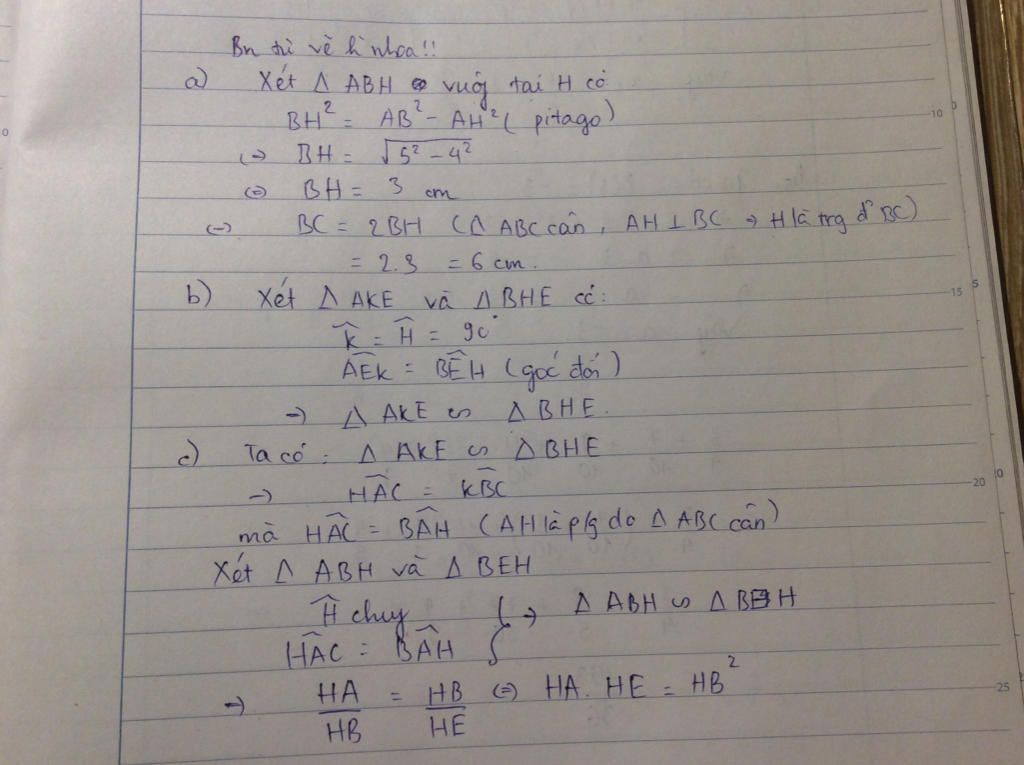 Bn tự vẽ hình nha!!
a) Xét Δ ABH vuôg tại H có
BH² = AB² - AH² ( pitago)
(=> BH = √5² - 4²
(=) BH = 3 cm
(=) BC = 2BH (Δ ABC cân, AH ⊥ BC → H là trg đ' BC)
= 2.3 = 6 cm.
b) Xét Δ AKE và Δ BHE có:
K̂ = Ĥ = 90°
AÊK = BÊH (góc đối)
→ Δ AKE ∽ Δ BHE.
c) Ta có: Δ AKE ∽ Δ BHE
→ HÂC = KB̂C
mà HÂC = BÂH (AH là p/g do Δ ABC cân)
Xét Δ ABH và Δ BEH
Ĥ chug
HÂC = BÂH } → Δ ABH ∽ Δ BEH
→ HA/HB = HB/HE (=) HA. HE = HB²
10
15
20
25
5
0